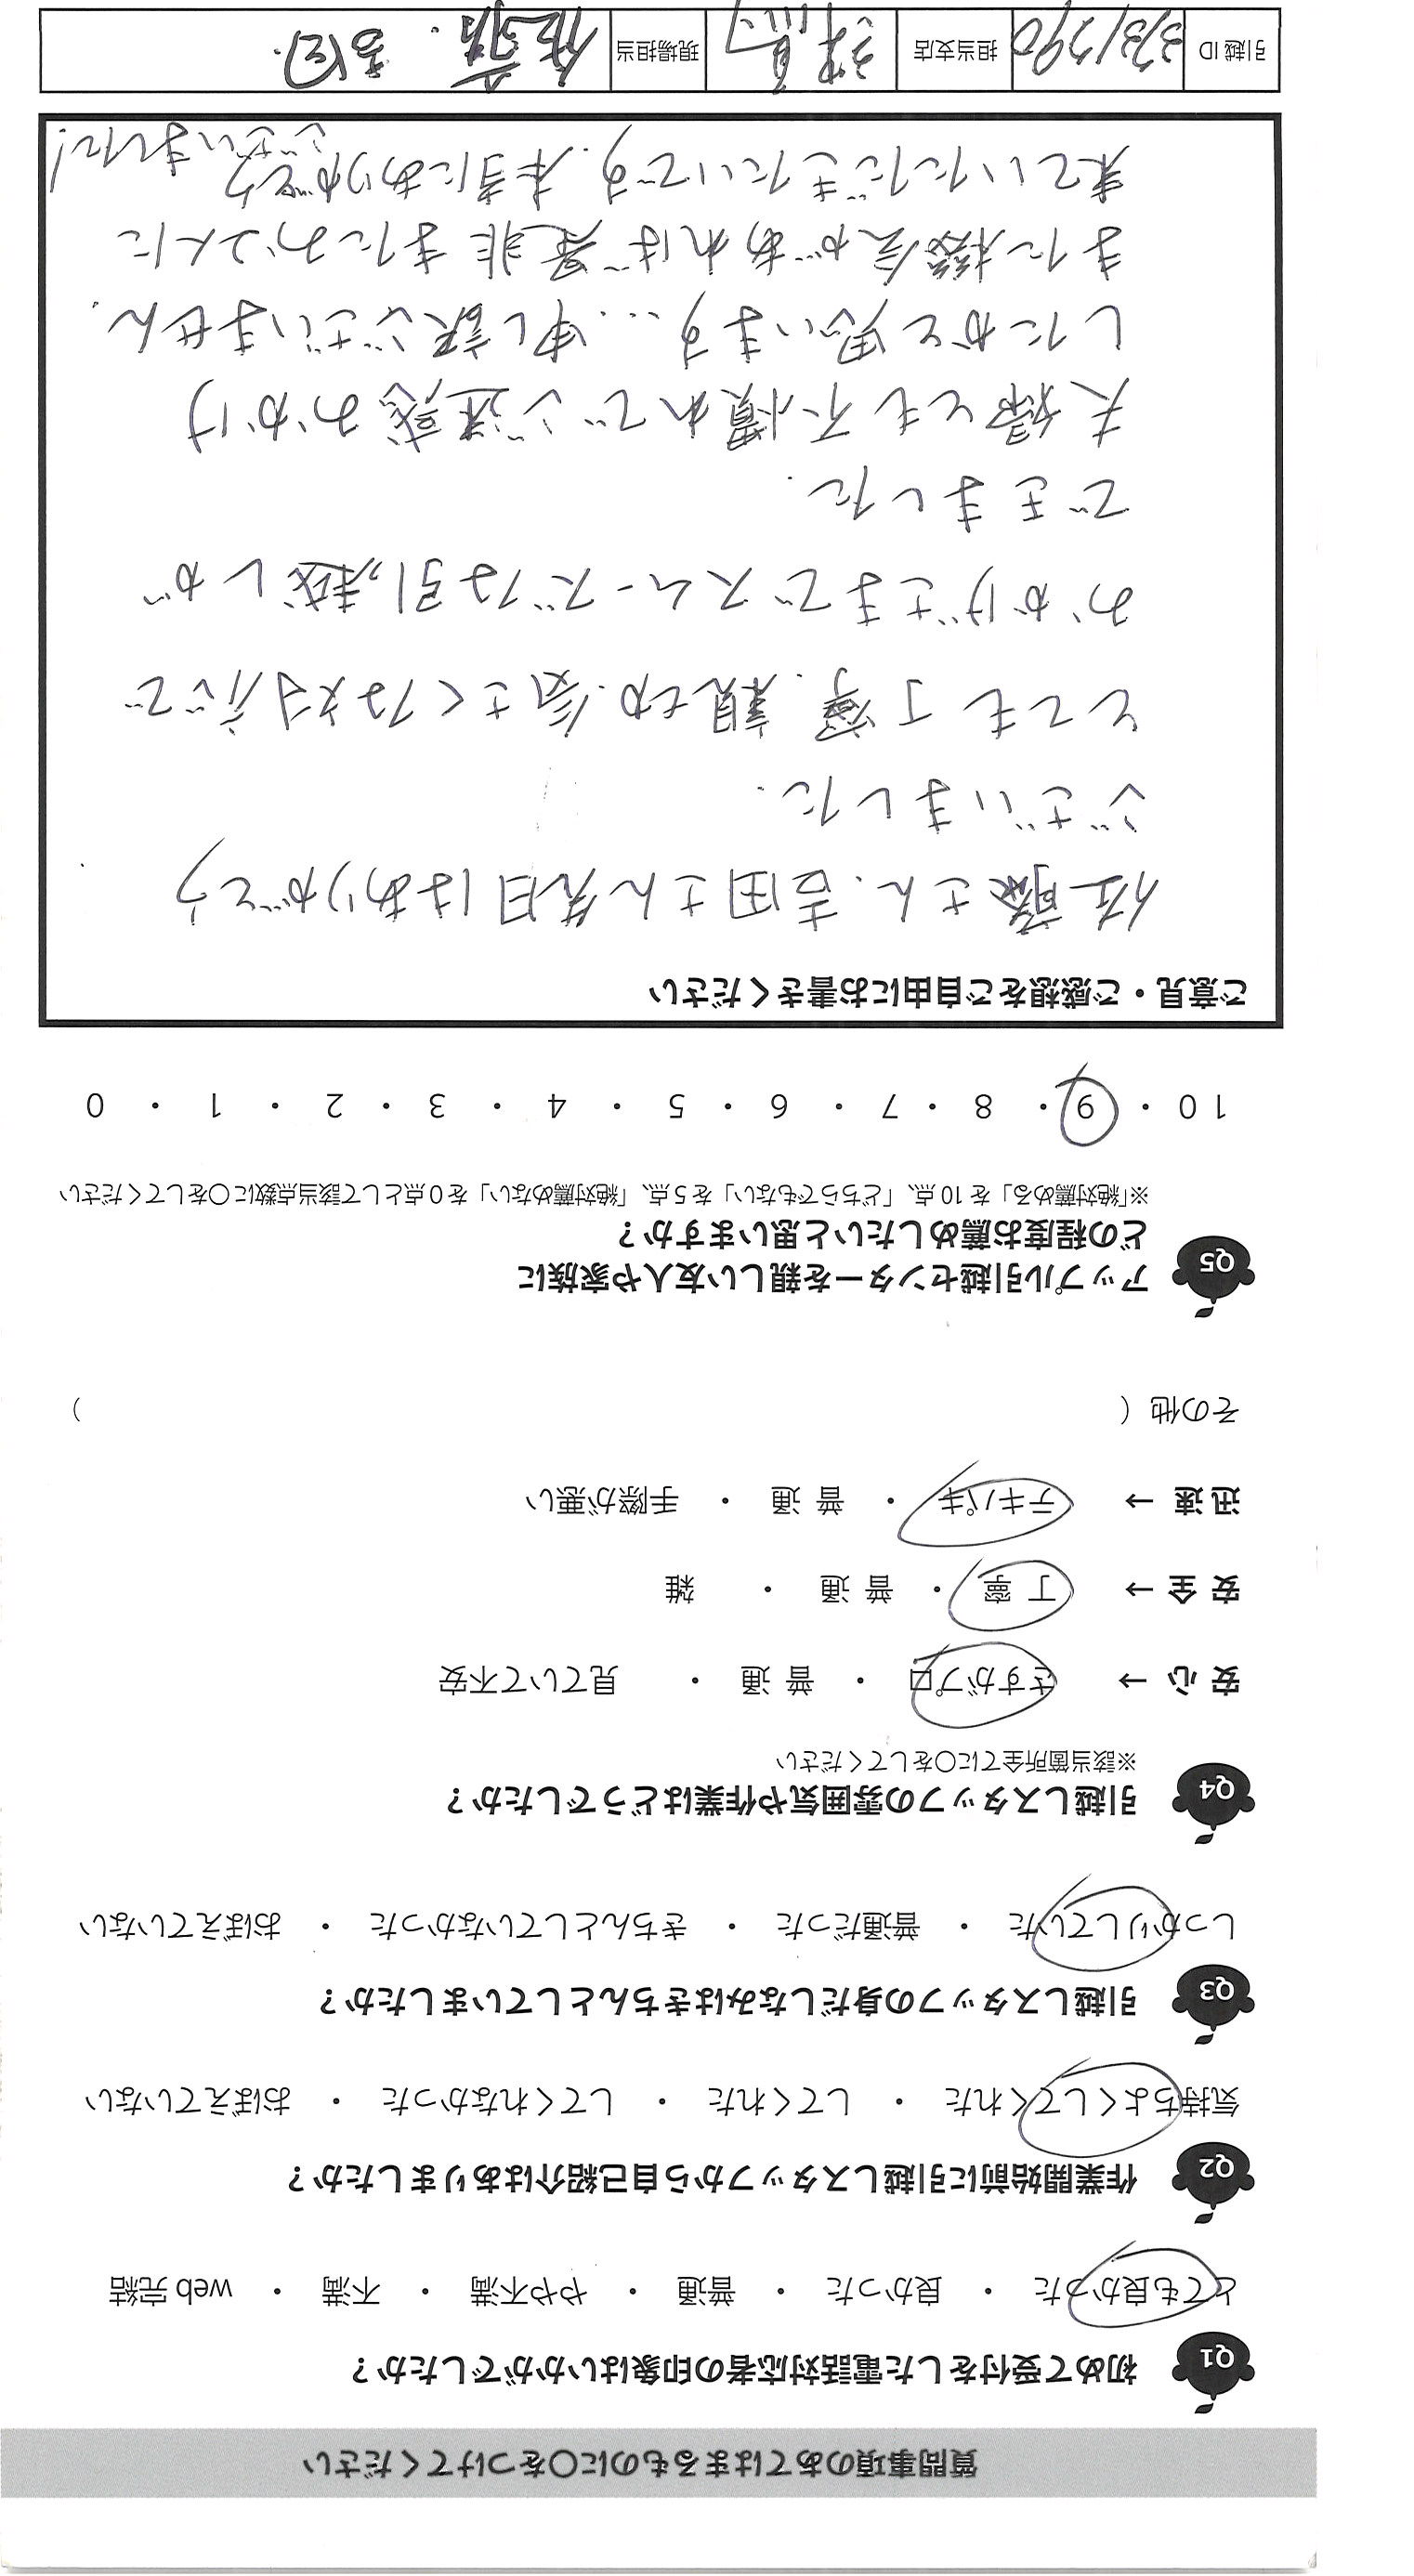 質問事項のあてはまるものに○をつけてください
Q1 初めて受付をした電話対応者の印象はいかがでしたか？
とても良かった ・ 良かった ・ 普通 ・ やや不満 ・ 不満 ・ web 完結
Q2 作業開始前に引越しスタッフから自己紹介はありましたか？
気持ちよくしてくれた ・ してくれた ・ してくれなかった ・ おぼえていない
Q3 引越しスタッフの身だしなみはきちんとしていましたか？
しっかりしていた ・ 普通だった ・ きちんとしていなかった ・ おぼえていない
Q4 引越しスタッフの雰囲気や作業はどうでしたか？
※該当箇所全てに○をしてください
安 心 → さすがプロ ・ 普 通 ・ 見ていて不安
安 全 → 丁 寧 ・ 普 通 ・ 雑
迅 速 → テキパキ ・ 普 通 ・ 手際が悪い
その他 （ ）
Q5 アップル引越センターを親しい友人や家族に
どの程度お薦めしたいと思いますか？
※「絶対薦める」を 10 点、「どちらでもない」を 5 点、「絶対薦めない」を 0 点として該当点数に○をしてください
10 ・ 9 ・ 8 ・ 7 ・ 6 ・ 5 ・ 4 ・ 3 ・ 2 ・ 1 ・ 0
ご意見・ご感想をご自由にお書きください
佐藤さん、吉田さん先日はありがとう
ございました.
とても丁寧、親切、気さくな対応で
おかげさまでスムーズな引っ越しが
できました.
夫婦とも不慣れでご迷惑おかけ
したかと思います… 申し訳ございません.
また機会があれば是非またお二人に
来ていただきたいです. 本当にありがとう
ございました!
引越 ID 3731290 担当支店 練馬 現場担当 佐藤. 吉田.